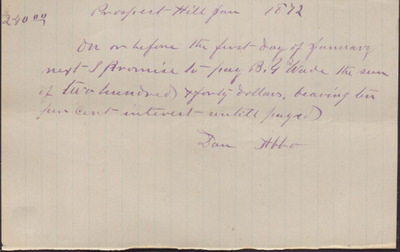 Prospect Hill Jan 1872
$240.00
On or before the first day of January
next I Promise to pay B.G Wade the sum
of two hundred & forty dollars, bearing ten
per cent interest untill payed
Dan Abbo